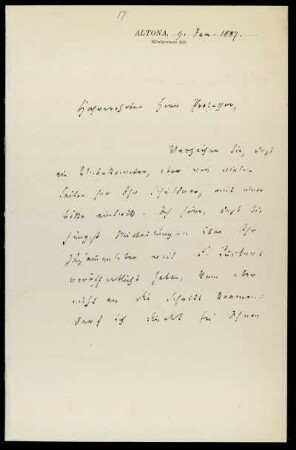 17
ALTONA, 9. Jan. 1887.
Hochverehrter Herr Professor,
Verzeihen Sie, dass
ein Unbekannter, aber von vielen
Seiten her Ihr Schuldner, mit einer
Bitte eintritt. Ich höre, dass Sie
jüngst Mitteilungen über Ihr
mit F.
veröffentlicht haben, kann aber
nicht an die Schrift kommen:
darf ich direkt bei Ihnen